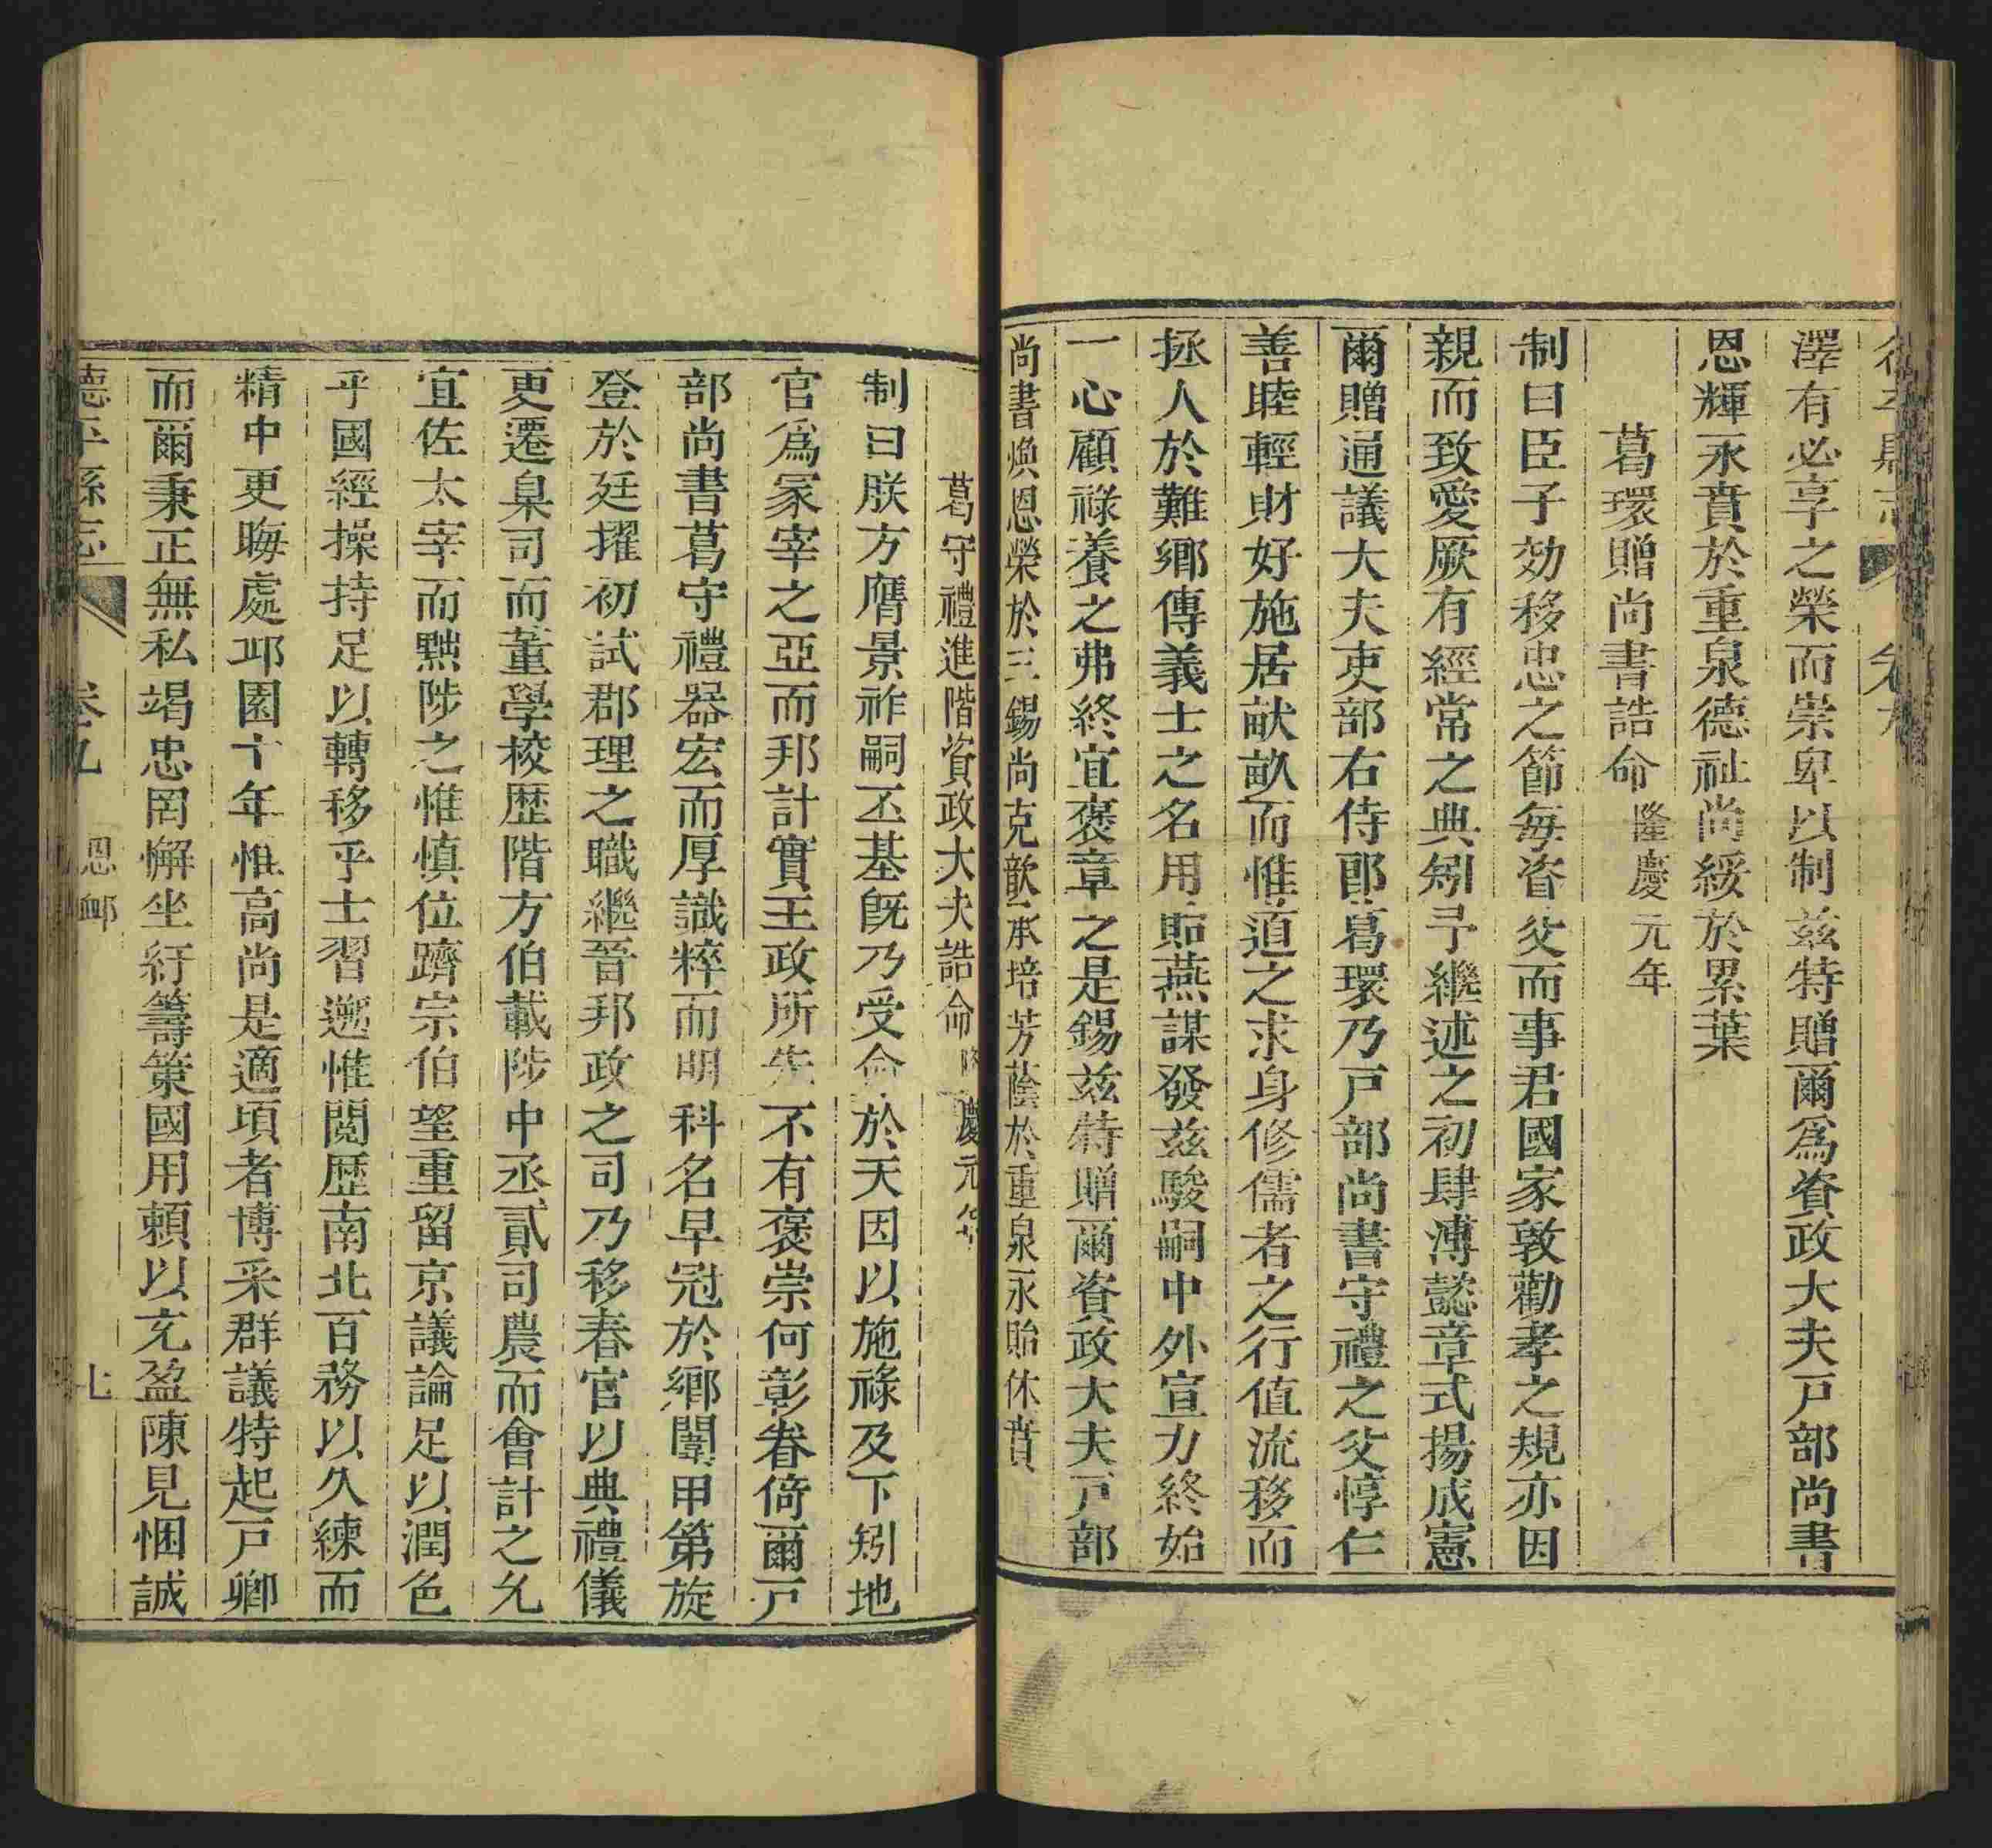 澤有必享之榮而崇卑以制兹特贈爾爲資政大夫戸部尚書
恩輝永賁於重泉德祉尚綏於累葉
葛環贈尚書誥命 隆慶元年
制曰臣子効移忠之節每資父而事君國家敦勸孝之規亦因
親而致愛厥有經常之典矧予繼述之初肆溥懿章式揚成憲
爾贈通議大夫吏部右侍郎葛環乃戸部尚書守禮之父惇仁
善睦輕財好施居畎畝而惟道之求身修儒者之行值流移而
拯人於難鄉傳義士之名用貽燕謀發兹駿嗣中外宣力終始
一心顧祿養之弗終宜褒章之是錫兹特贈爾資政大夫戸部
尚書煥恩榮於三錫尚克歆承培芳蔭於重泉永貽休賁
葛守禮進階資政大夫誥命 慶元年
制曰朕方膺景祚嗣丕基旣乃受命於天因以施祿及下矧地
官爲冡宰之亞而邦計實王政所先不有褒崇何彰眷倚爾戸
部尚書葛守禮器宏而厚識粹而明科名早冠於鄉闈甲第旋
登於廷擢初試郡理之職繼晉邦政之司乃移春官以典禮儀
更遷臬司而董學校歷階方伯載陟中丞貳司農而會計之允
宜佐太宰而黜陟之惟慎位躋宗伯望重留京議論足以潤色
乎國經操持足以轉移乎士習邇惟閱歷南北百務以久練而
精中更晦處邱園十年惟高尚是適項者博采群議特起戸卿
而爾秉正無私竭忠罔懈坐紆籌策國用頼以充盈陳見悃誠
德平縣志 卷九 恩䘏 七